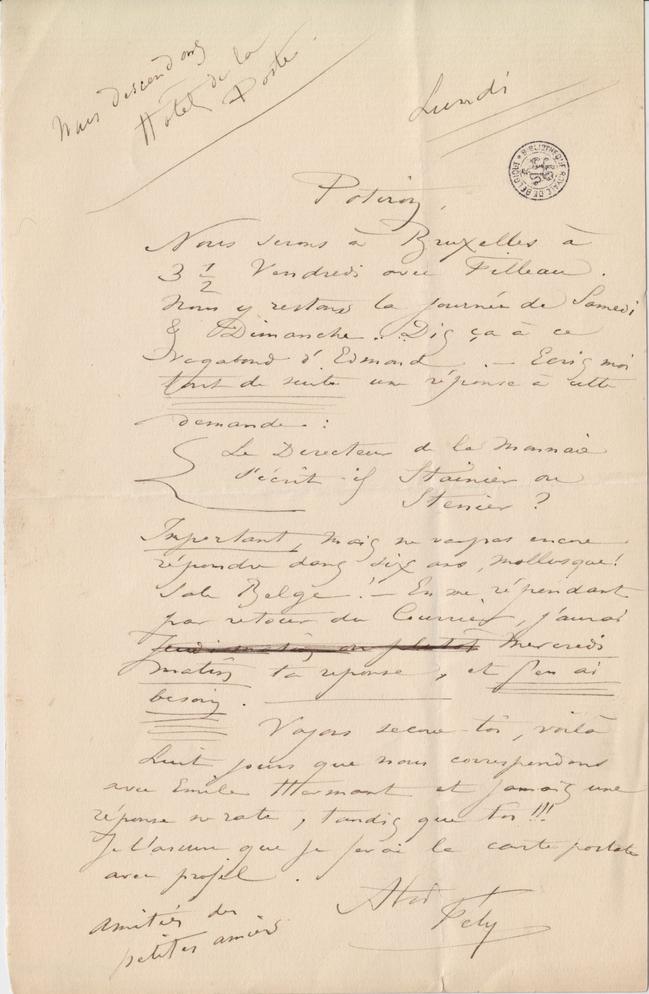 Nous descendons
Hôtel de la
Poste.
Lundi
BIBLIOTHEQUE ROYALE DE BELGIQUE
Potiron,
Nous serons à Bruxelles à
3 1/2 Vendredi avec Filleau.
Nous y restons la journée de Samedi
& Dimanche. Dis ça à ce
vagabond d'Edmond. — Ecris moi
tout de suite une réponse à cette
demande :
Le Directeur de la Monnaie
s'écrit-il Stainier ou
Stenier ?
Important, mais ne vas pas encore
répondre dans six ans, mollusque !
Sale Belge ! — En me répondant
par retour du Courrier, j'aurai
Jeudi matin ou plutôt Mercredi
matin ta réponse, et j'en ai
besoin. —
Voyons secoue-toi, voilà
huit jours que nous correspondons
avec Emile Hermant et jamais une
réponse ne rate, tandis que toi !!!
Je t'assure que je ferai la carte postale
avec profil.
à toi
Fély
amitiés des
petites amies